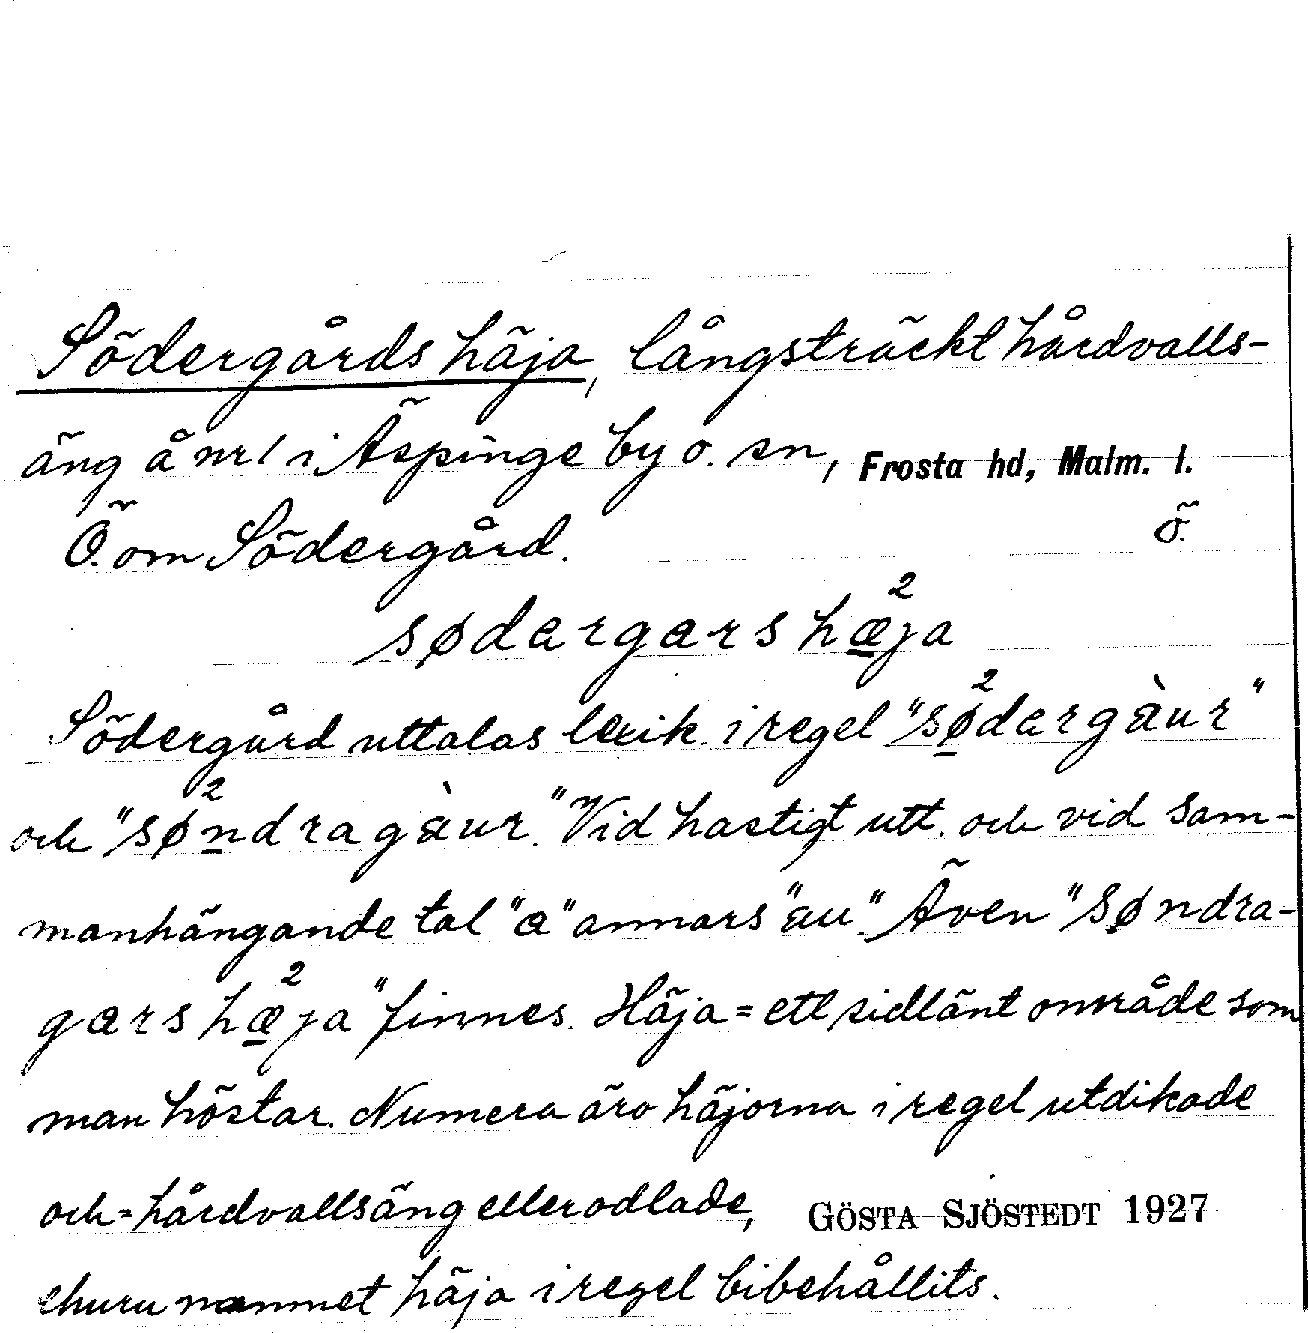 Södergårds häja, långsträckt hårdvalls-
äng å nr 1 i Äspinge by o. sn, Frosta hd, Malm. l.
Ö. om Södergård. ö.
sødærgærs hæ²ja
Södergård uttalas lexik. i regel "sø²dærgàur"
och "sø²ndragàur". Vid hastigt utt. och vid sam-
manhängande tal "æ" annars "au". Även "søndra-
gærs hæ²ja" finnes. Häja = ett sidlänt område som
man höstar. Numera äro häjorna i regel utdikade
och = hårdvallsäng eller odlade, GÖSTA SJÖSTEDT 1927
ehuru namnet häja i regel bibehållits.